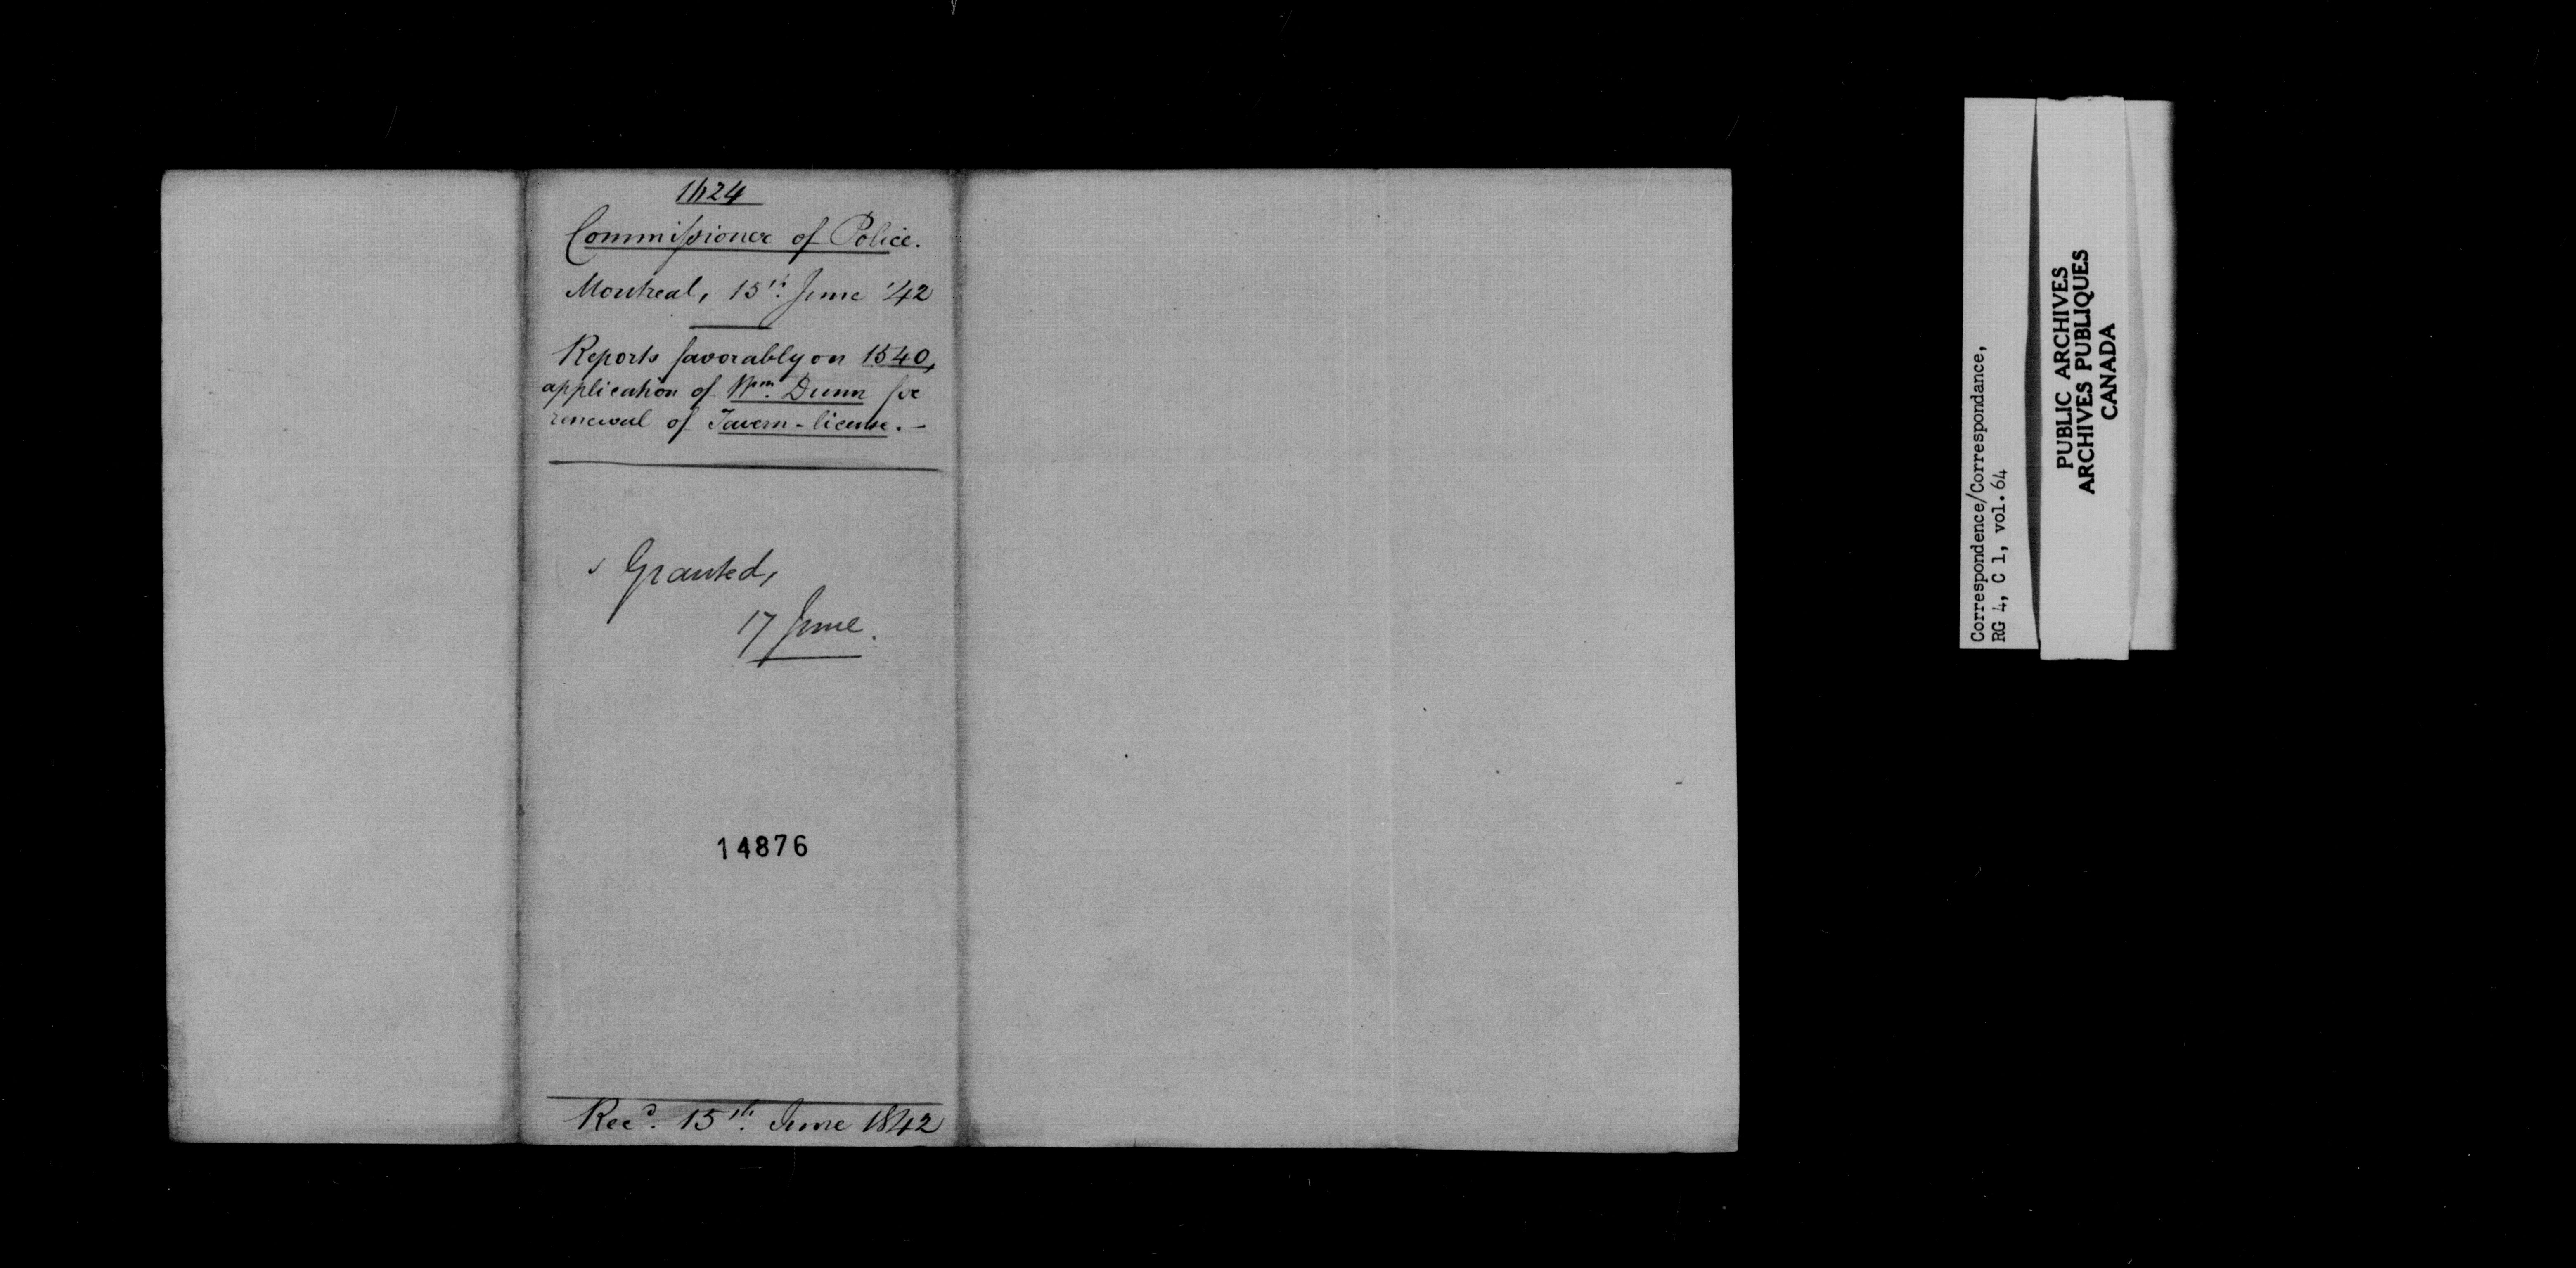 1624
Commissioner of Police.
Montreal, 15th. June '42
Reports favorably on 1540,
application of Wm. Dunn for
renewal of Tavern-license. -
Granted,
17 June.
14876
Recd. 15th. June 1842
Correspondence/Correspondance,
RG 4, C 1, vol.64
PUBLIC ARCHIVES
ARCHIVES PUBLIQUES
CANADA